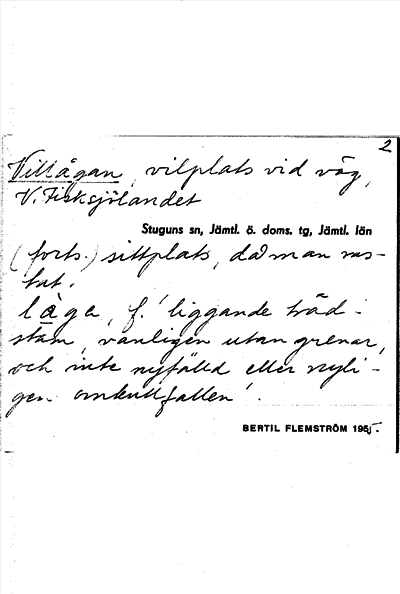 2
Villågan, vilplats vid väg,
V. Fisksjölandet
Stuguns sn, Jämtl. ö. doms. tg, Jämtl. län
(forts.) sittplats, då man ras-
tat.
låga, f. 'liggande träd-
stam, vanligen utan grenar,
och inte nyfälld eller nyli-
gen omkullfallen'.
BERTIL FLEMSTRÖM 1955.